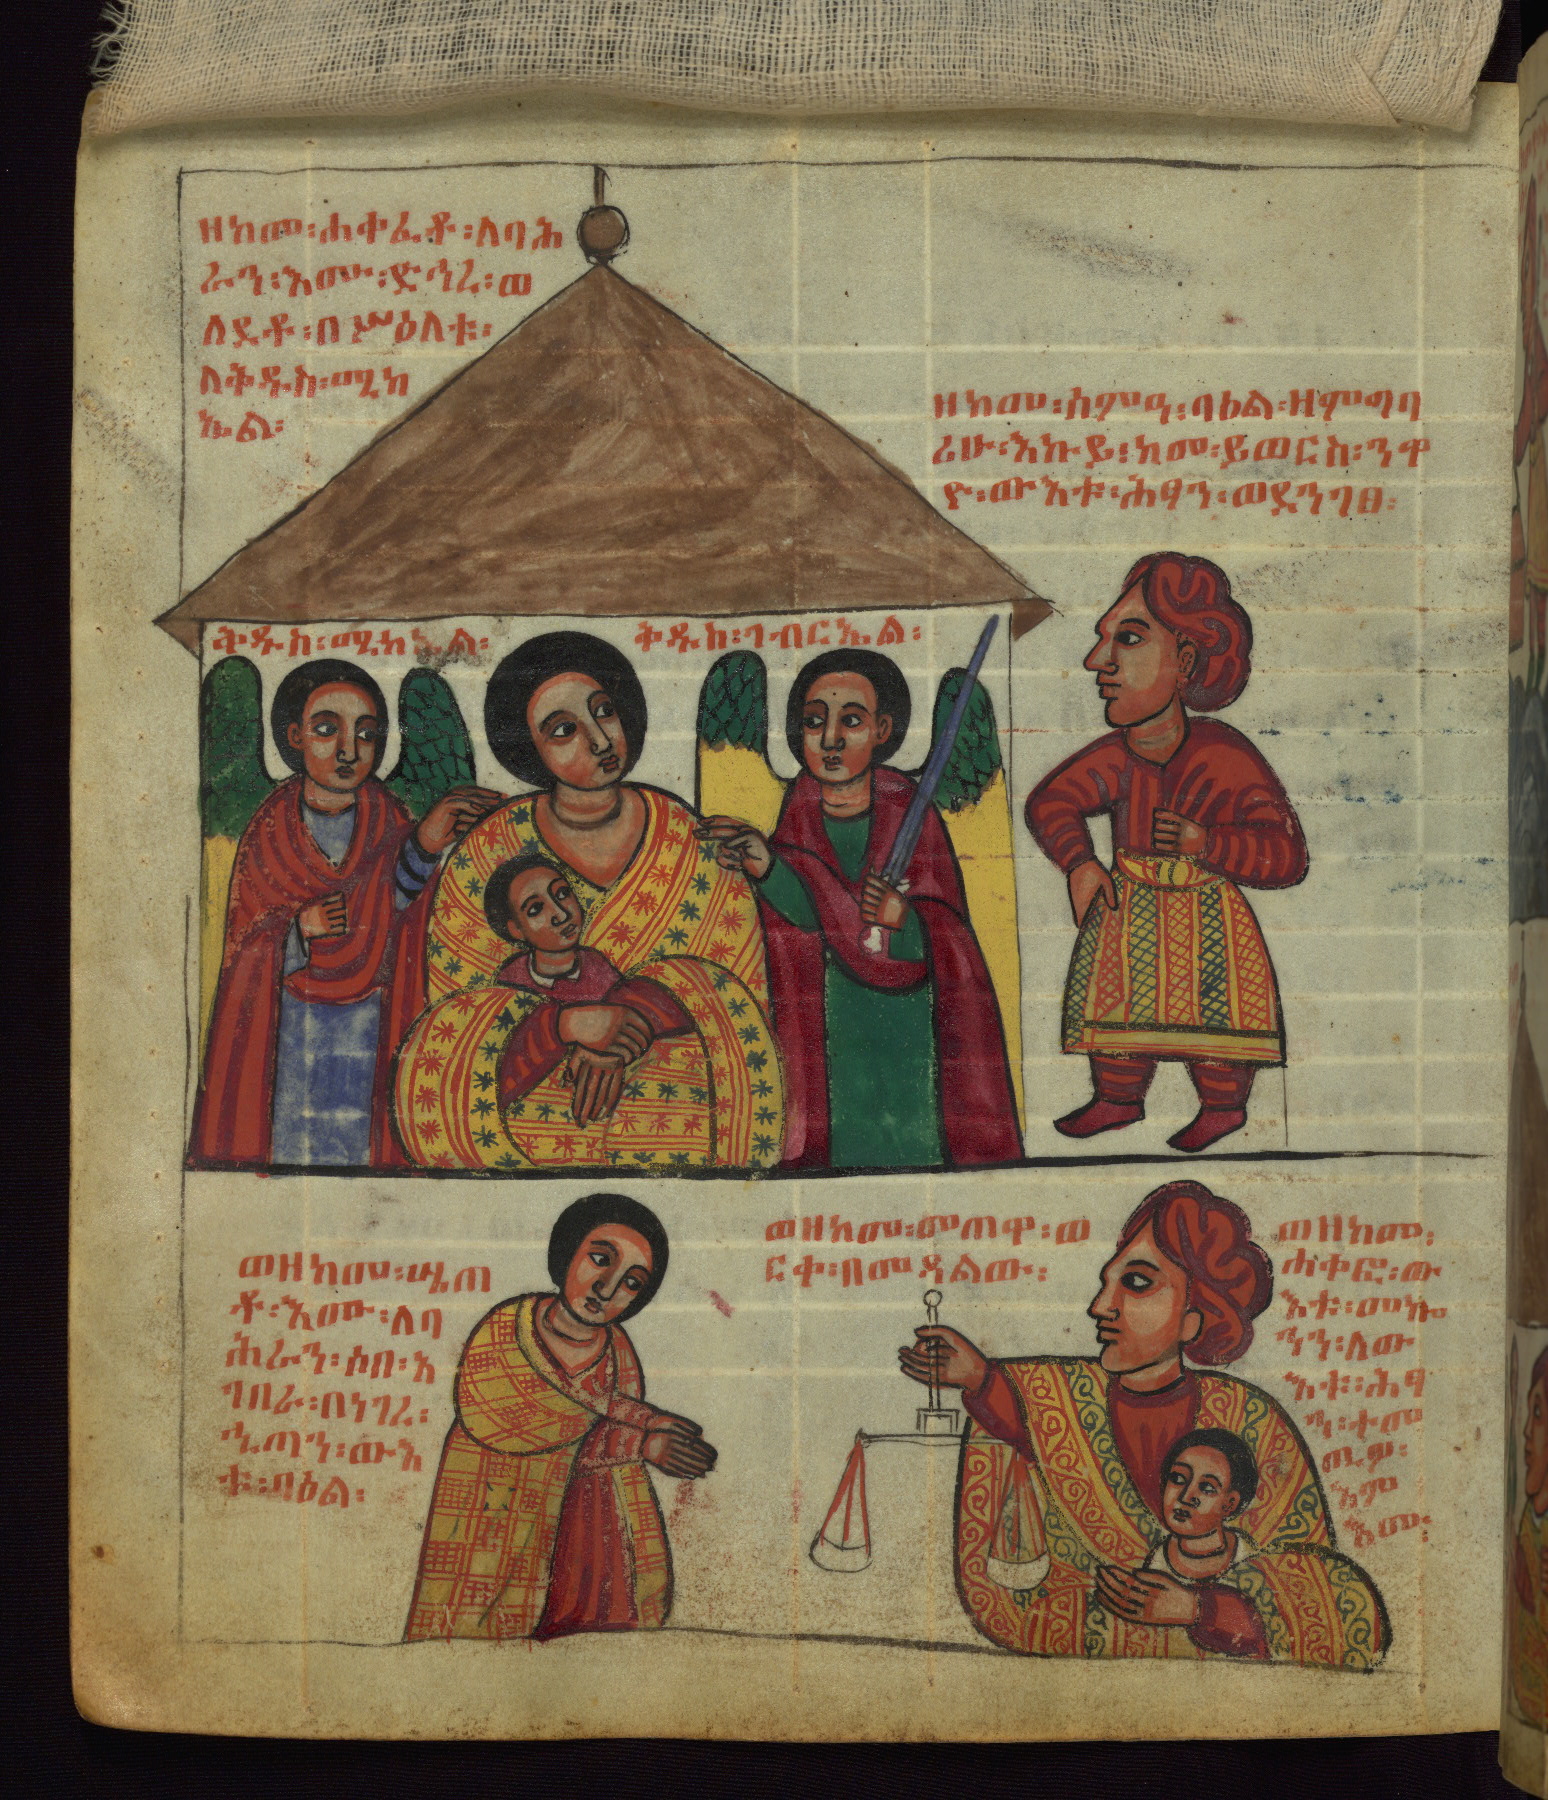 ዘከመ፡ሐቀፈቶ፡ለባሕ
ራን፡እሙ፡ድኅረ፡ወ
ለደቶ፡በሥዕለቱ፡
ለቅዱስ፡ሚካ
ኤል፡
ዘከመ፡ሰምዓ፡ባዕል፡ዘምግባ
ሪሁ፡እኩይ፡ከመ፡ይወርስ፡ንዋ
ዮ፡ውእቱ፡ሕፃን፡ወደንገፀ፡
ቅዱስ፡ሚካኤል፡
ቅዱስ፡ገብርኤል፡
ወዘከመ፡ሤጠ
ቶ፡እሙ፡ለባ
ሕራን፡ሶበ፡አ
ገበራ፡በነገረ፡
ኂጣን፡ውእ
ቱ፡ባዕል፡
ወዘከመ፡መጠዋ፡ወ
ርቀ፡በመዳልው፡
ወዘከመ፡
ሐቀፎ፡ው
እቱ፡መኰ
ንን፡ለው
እቱ፡ሕፃ
ን፡ተመ
ጢዎ፡
እም
እሙ፡